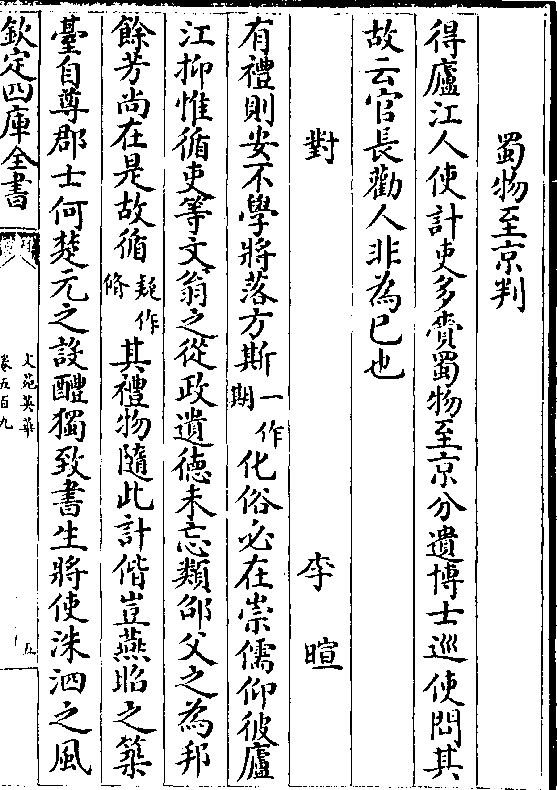 蜀物至京判
得廬江人使計吏多賫蜀物至京分遺博士巡使問其
故云官長勸人非為已也
對 李暄
有禮則安不學將落方斯一作期化俗必在崇儒仰彼廬
江抑惟循吏等文翁之從政遺德未忘類邵父之為邦
餘芳尚在是故循疑作脩其禮物隨此計偕豈燕昭之築
臺自尊郡士何楚元之設醴獨致書生將使洙泗之風
欽定四庫全書
文苑英華
卷五百九
五